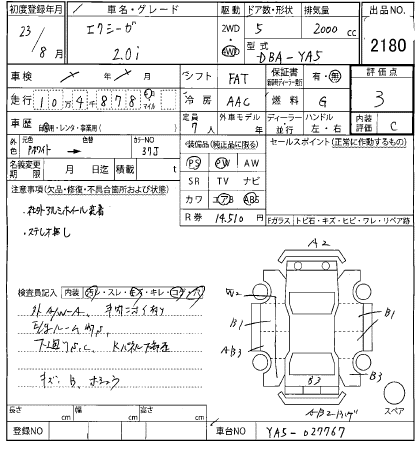 初度登録年月 車名・グレード 駆動 ドア数・形状 排気量 出品NO.
23/8月 エクシーガ 2.0i 2WD 4WD 5 2000cc 2180
型式 DBA-YA5
車検 月 シフト FAT 保証書 有・無 評価点
走行 10万4千878 km マイル 冷房 AAC 燃料 G 3
車歴 自家用・レンタ・事業用( ) 定員 7人 外車モデル 年 ディーラー・並行 ハンドル 左・右 内装評価 C
外色 元色 色替 カラーNO 37J
装備品(純正品に限る) セールスポイント(正常に動作するもの)
名義変更期限 月 日迄 積載 t
PS PW AW
SR TV ナビ
カワ エアB ABS
R券 14,510円
注意事項(欠品・修復・不具合箇所および状態)
・社外アルミホイール装着
・ステレオ無し
Fガラス トビ石・キズ・ヒビ・ワレ・リペア跡
検査員記入 内装 汚れ・スレ・モス・キレ・コゲ・穴
外A/W-A
キズ、B、
A2
W2
B1
B1
AB3
B3
B3
スペア
長さ cm 幅 cm 高さ cm
登録NO 車台NO YA5-027767